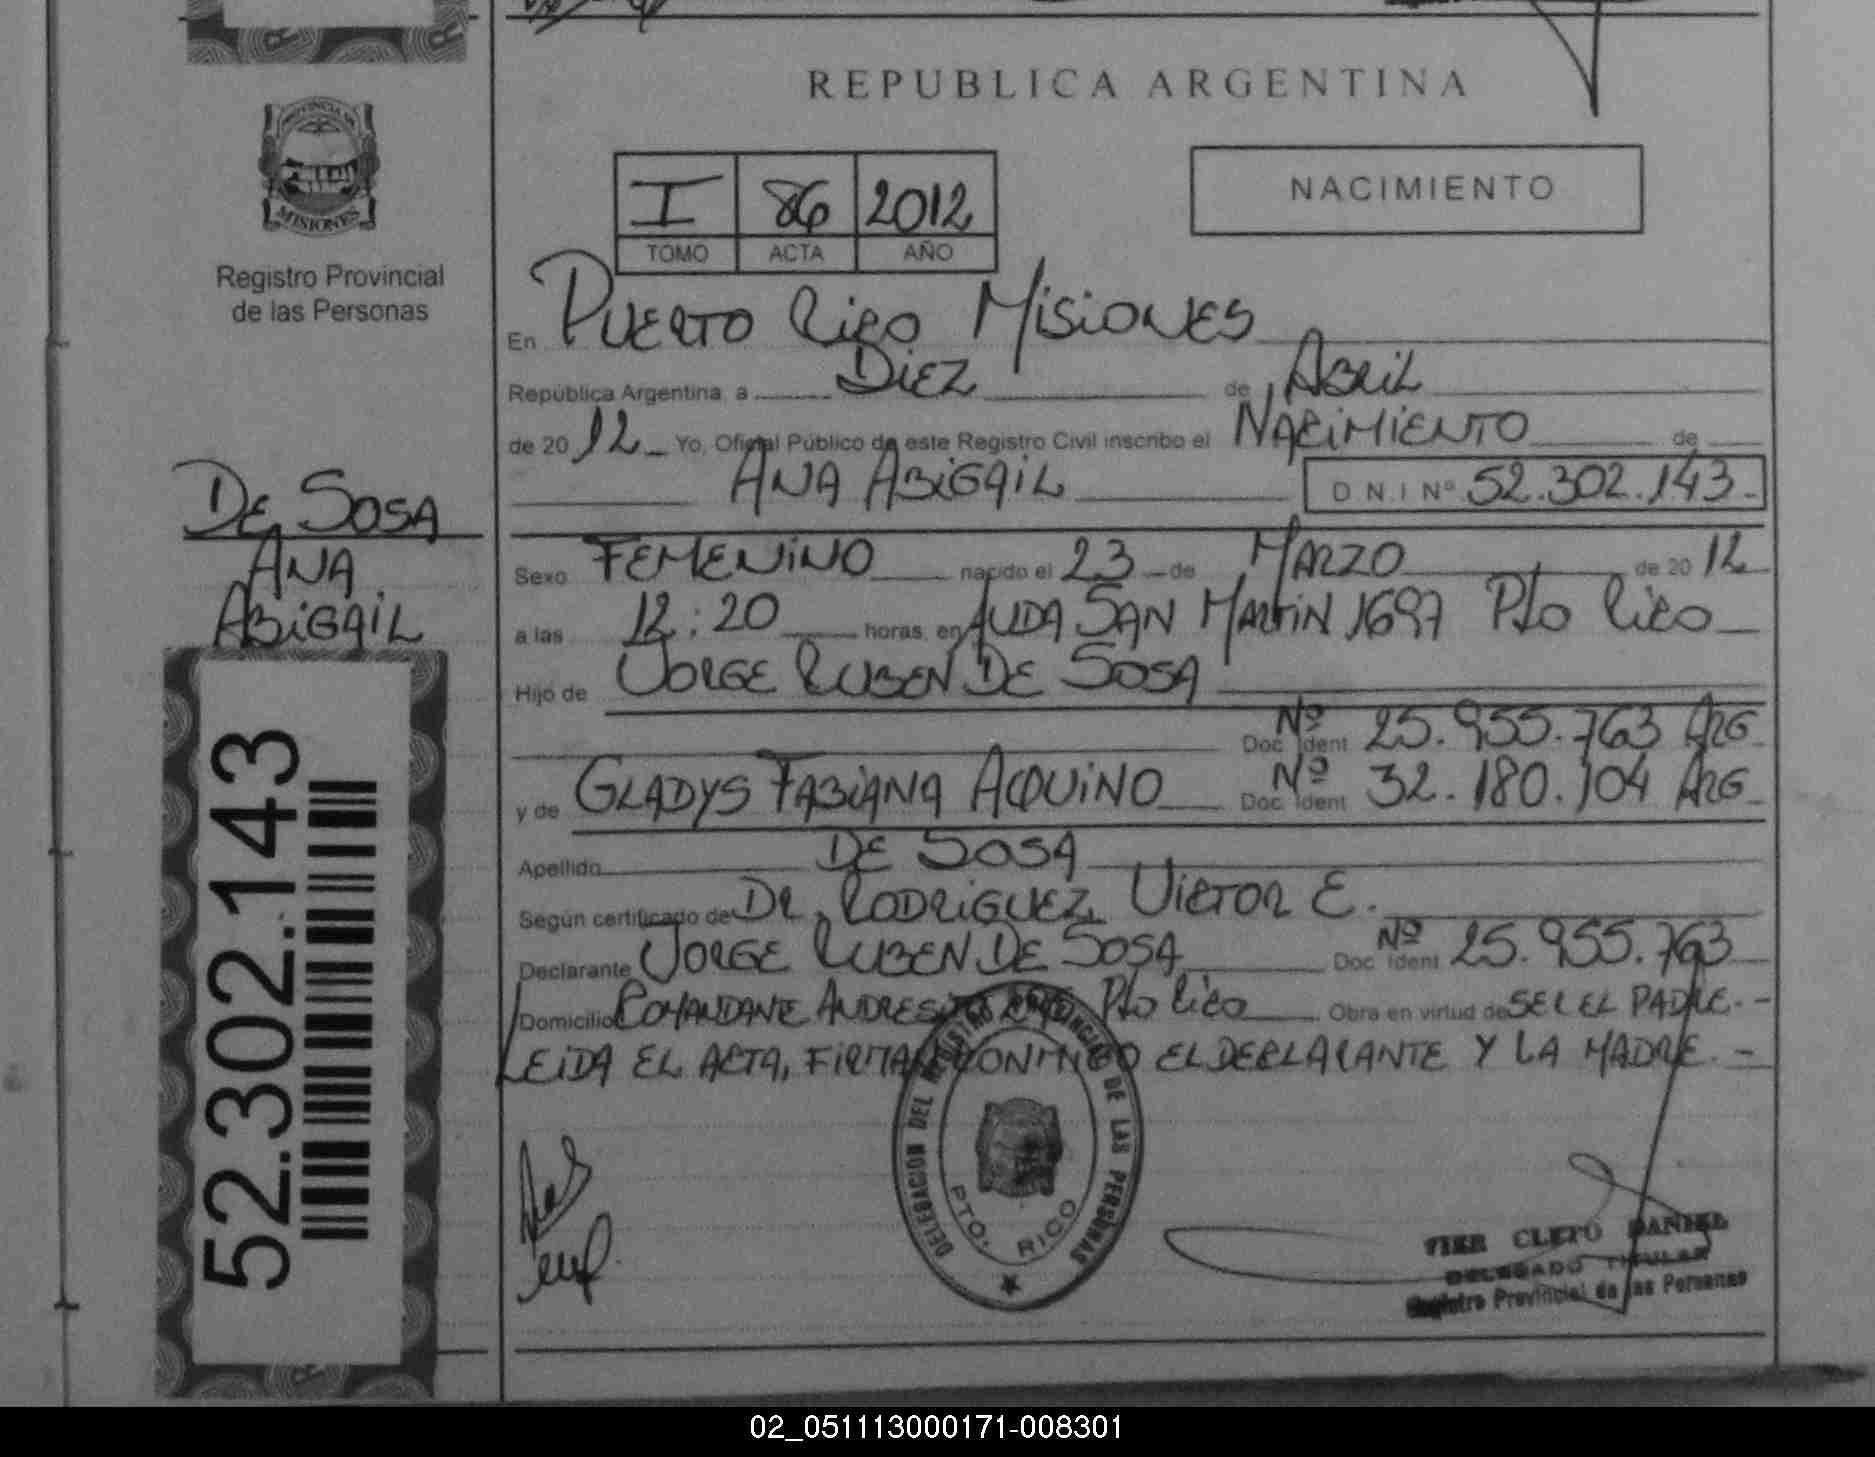 REPUBLICA ARGENTINA
PROVINCIA DE
MISIONES
Registro Provincial
de las Personas
I 86 2012
TOMO ACTA AÑO
NACIMIENTO
En PUERTO RICO MISIONES
República Argentina, a DIEZ de ABRIL
de 20 12 Yo, Oficial Público de este Registro Civil inscribo el NACIMIENTO de
ANA ABIGAIL D.N.I Nº 52.302.143.-
DE SOSA
ANA
ABIGAIL
52.302.143
Sexo FEMENINO nacido el 23 de MARZO de 20 12
a las 12:20 horas, en AVDA SAN MARTIN 1697 Pto RICO
Hijo de JORGE RUBEN DE SOSA
Doc. Ident Nº 25.955.763 ARG
y de GLADYS FABIANA ACQUINO Doc. Ident Nº 32.180.104 ARG
Apellido DE SOSA
Según certificado de DR. RODRIGUEZ, VICTOR E.
Declarante JORGE RUBEN DE SOSA Doc. Ident Nº 25.955.763
Domicilio COMANDANTE Pto RICO Obra en virtud de SER EL PADRE.-
LEIDA EL ACTA, FIRMAN CONMIGO EL DECLARANTE Y LA MADRE.-
DELEGACION DEL REGISTRO PROVINCIAL DE LAS PERSONAS
PTO. RICO
CLETO DANIEL
DELEGADO TITULAR
Registro Provincial de las Personas
02_051113000171-008301